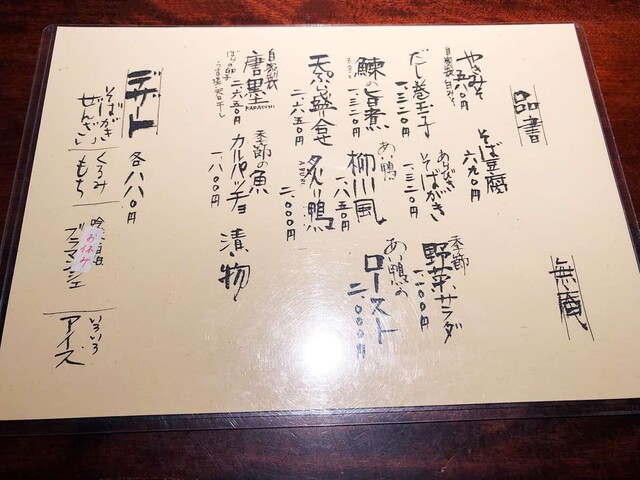 品書
無庵
やきみそ
五八〇円
自家製白みそ
そば豆腐
六九〇円
だし巻玉子
一、三二〇円
あらびき
そばがき
一、三二〇円
季節
野菜サラダ
一、一〇〇円
鰊の旨煮
一、三二〇円
あい鴨
柳川風
一、八五〇円
あい鴨の
ロースト
二、〇〇〇円
天ぷら盛合せ
二、六五〇円
炙り鴨
ABURI
二、〇〇〇円
自家製
唐墨
KARASUMI
ぼらの卵
うす塩天日干し
二、六五〇円
季節の魚
カルパッチョ
一、八〇〇円
漬物
デザート
各八八〇円
そばがき
ぜんざい
くるみ
もち
お休み
ブラマンジェ
いろいろ
アイス